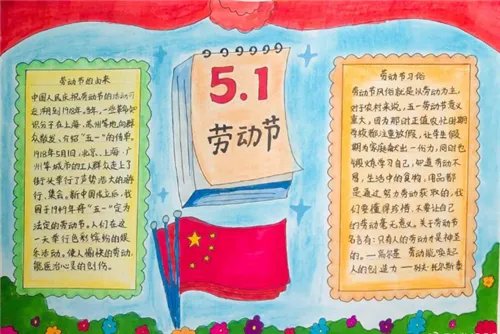 劳动节的由来
中国人民庆祝劳动节的活动可
追溯到1918年。当年，一些革命知
识分子在上海、苏州等地向群
众散发、介绍“五一”的传单。
1918年5月1日，北京、上海、广
州等城市的工人群众走上了
街头举行了声势浩大的游
行、集会。新中国成立后，我
国于1949年将“五一”定为
法定的劳动节。人们在这
一天举行色彩缤纷的娱
乐活动。使人愉快的劳动，
能医治心灵的创伤。
5.1
劳动节
劳动节习俗
劳动节风俗就是以劳动为主，
对于农村来说，五一劳动节意义
重大，因为那时正值农忙时期
学校都注重放假，让学生假
期为家庭献出一份力，同时也
锻炼学习自己，知道劳动不
易，生活中的食物，用品都
是通过努力劳动获取的，我
们要懂得珍惜，不要让自己
的劳动毫无意义。关于劳动节
名言有：只有人的劳动才是神圣
的。—高尔基 劳动能唤起
人的创造力 —列夫·托尔斯泰